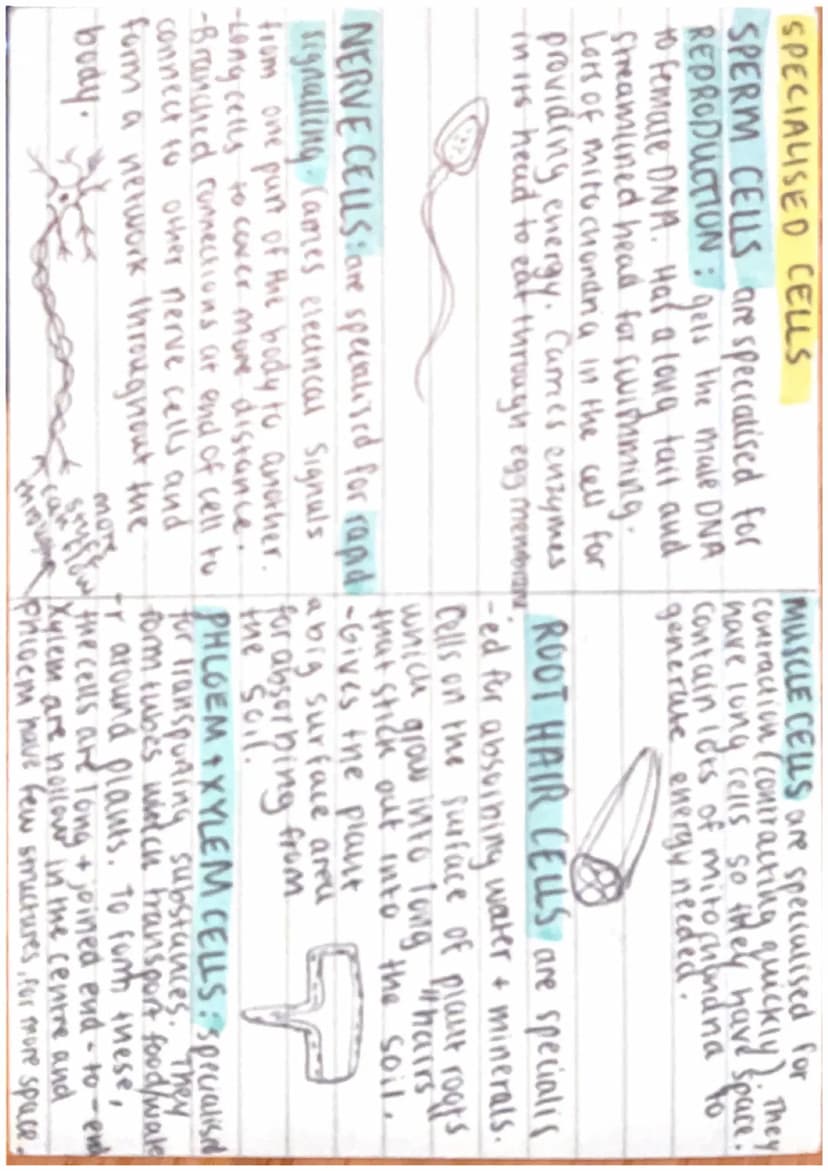 SPECIALISED CELLS
SPERM CELLS are specialised for
REPRODUCTION: gets the male DNA
to female DNA. Has a long tail and
streamlined head for swimming.
Lots of mitochondria in the cell for
providing energy. Carries enzymes
in its head to eat through egg membrane
NERVE CELLS: are specialised for rapid
signalling. Carries electrical signals
from one part of the body to another.
-Long cells to cover more distance.
-Branched connections at end of cell to
connect to other nerve cells and
form a network throughout the
body.
more
stuff
can flow
through
MUSCLE CELLS are specialised for
contraction (contracting quickly). They
have long cells so they have space.
Contain lots of mitochondria to
generate energy needed.
ROOT HAIR CELLS are specialis
-ed for absorbing water + minerals.
Cells on the surface of plant roots
which grow into long "hairs
that stick out into the soil.
-Gives the plant
a big surface area
for absorbing from
the soil.
PHLOEM + XYLEM CELLS: specialised
for transporting substances. They
form tubes which transport food/wate
-r around plants. To form these,
the cells are long + joined end-to-end
xylem are hollow in the centre and
phloem have few structures, for more space.